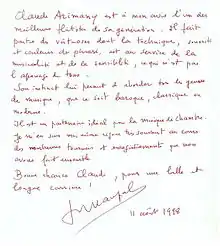 Claude Arimany est à mon avis l'un des
meilleurs flûtistes de sa génération. Il fait
partie des virtuoses dont la technique, sonorité
et couleurs de phrasé, est au service de la
musicalité et de la sensibilité, ce qui n'est pas
l'apanage de tous.
Son instinct lui permet d'aborder tous les genres
de musique, que ce soit baroque, classique ou
moderne.
Il est un partenaire idéal pour la musique de chambre.
Je m'en suis moi même rendu compte au cours
des nombreuses tournées et enregistrements que nous
avons fait ensemble.
Bonne chance Claude, pour une belle et
longue carrière!
11 août 1998